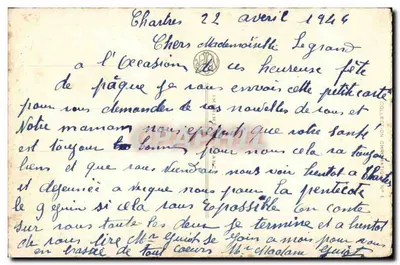 Chartres 22 avril 1946
Chers Mademoiselle Legrand
a l'Occasion de ces heureuse fête
de pâque je vous envois cette petite carte
pour vous demander de vos nouvelles de vous et
Votre maman nous espérons que votre santé
est toujour bonne pour nous cela va toujour
bien et que vous viendrais nous voir bientot a Chartres
et dejeunée avecque nous pour la pentecote
le 9 juin si cela vous est possible on conte
sur vous toute les deux je termine et a bientot
de vous lire Mr se join a moi pour vous
en brassé de tout coeurs Mr Madame